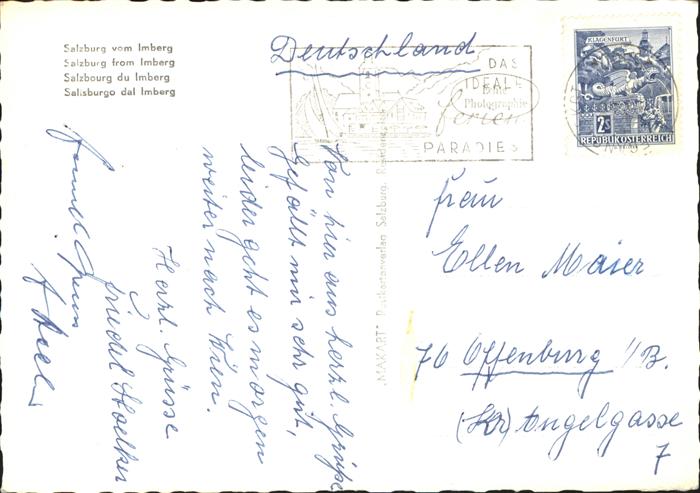 Salzburg vom Imberg
Salzburg from Imberg
Salzbourg du Imberg
Salisburgo dal Imberg
Deutschland
DAS
IDEALE
Echte
Photographie
ferien
PARADIES
KLAGENFURT
2S
REPUBLIK ÖSTERREICH
Von hier aus herzl. Grüße
Gefällt mir sehr gut,
leider geht es morgen
weiter nach Wien.
Herzl. Grüsse
Friedel
"MAKART" Postkartenverlag Salzburg,
Frau
Ellen Maier
76 Offenburg i/B.
Angelgasse
7